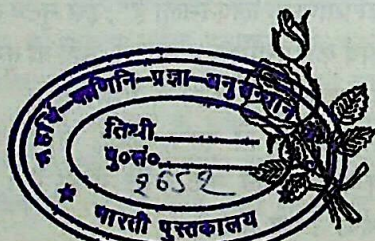 महर्षि-पाणिनि-प्रज्ञा-अनुसन्धान
तिथी
पु०सं०
२६५२
भारती पुस्तकालय